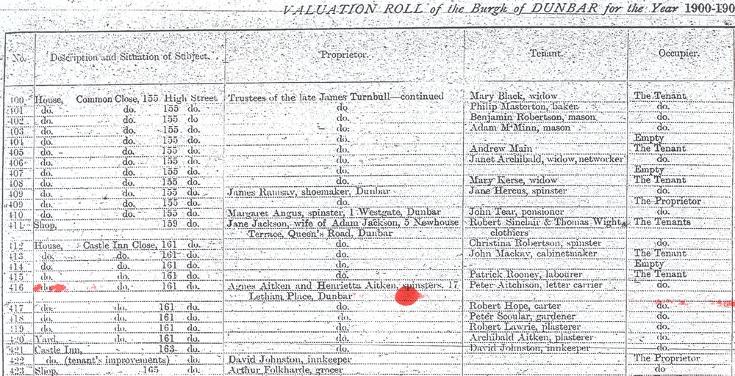 VALUATION ROLL of the Burgh of DUNBAR for the Year 1900-190
No. Description and Situation of Subject. Proprietor. Tenant. Occupier.
400 House, Common Close, 155 High Street Trustees of the late James Turnbull—continued Mary Black, widow The Tenant
401 do. do. 155 do. do. Philip Masterton, baker do.
402 do. do. 155 do. do. Benjamin Robertson, mason do.
403 do. do. 155 do. do. Adam M'Minn, mason do.
404 do. do. 155 do. do. Empty
405 do. do. 155 do. do. Andrew Main The Tenant
406 do. do. 155 do. do. Janet Archibald, widow, networker do.
407 do. do. 155 do. do. Empty
408 do. do. 155 do. do. Mary Kerse, widow The Tenant
409 do. do. 155 do. James Ramsay, shoemaker, Dunbar Jane Hercus, spinster do.
409 do. do. 155 do. do. The Proprietor
410 do. do. 155 do. Margaret Angus, spinster, 1 Westgate, Dunbar John Tear, pensioner do.
411 Shop, 159 do. Jane Jackson, wife of Adam Jackson, 5 Newhouse Robert Sinclair & Thomas Wight, The Tenants
Terrace, Queen's Road, Dunbar clothiers
412 House, Castle Inn Close, 161 do. do. Christina Robertson, spinster do.
413 do. do. 161 do. do. John Mackay, cabinetmaker The Tenant
414 do. do. 161 do. do. Empty
415 do. do. 161 do. do. Patrick Rooney, labourer The Tenant
416 do. do. 161 do. Agnes Aitken and Henrietta Aitken, spinsters, 17 Peter Aitchison, letter carrier do.
Letham Place, Dunbar
417 do. do. 161 do. do. Robert Hope, carter do.
418 do. do. 161 do. do. Peter Scoular, gardener do.
419 do. do. 161 do. do. Robert Lawrie, plasterer do.
420 Yard, do. 161 do. do. Archibald Aitken, plasterer do.
421 Castle Inn, 163 do. do. David Johnston, innkeeper do.
422 do. (tenant's improvements) do. David Johnston, innkeeper The Proprietor
423 Shop, 165 do. Arthur Folkharde, grocer do